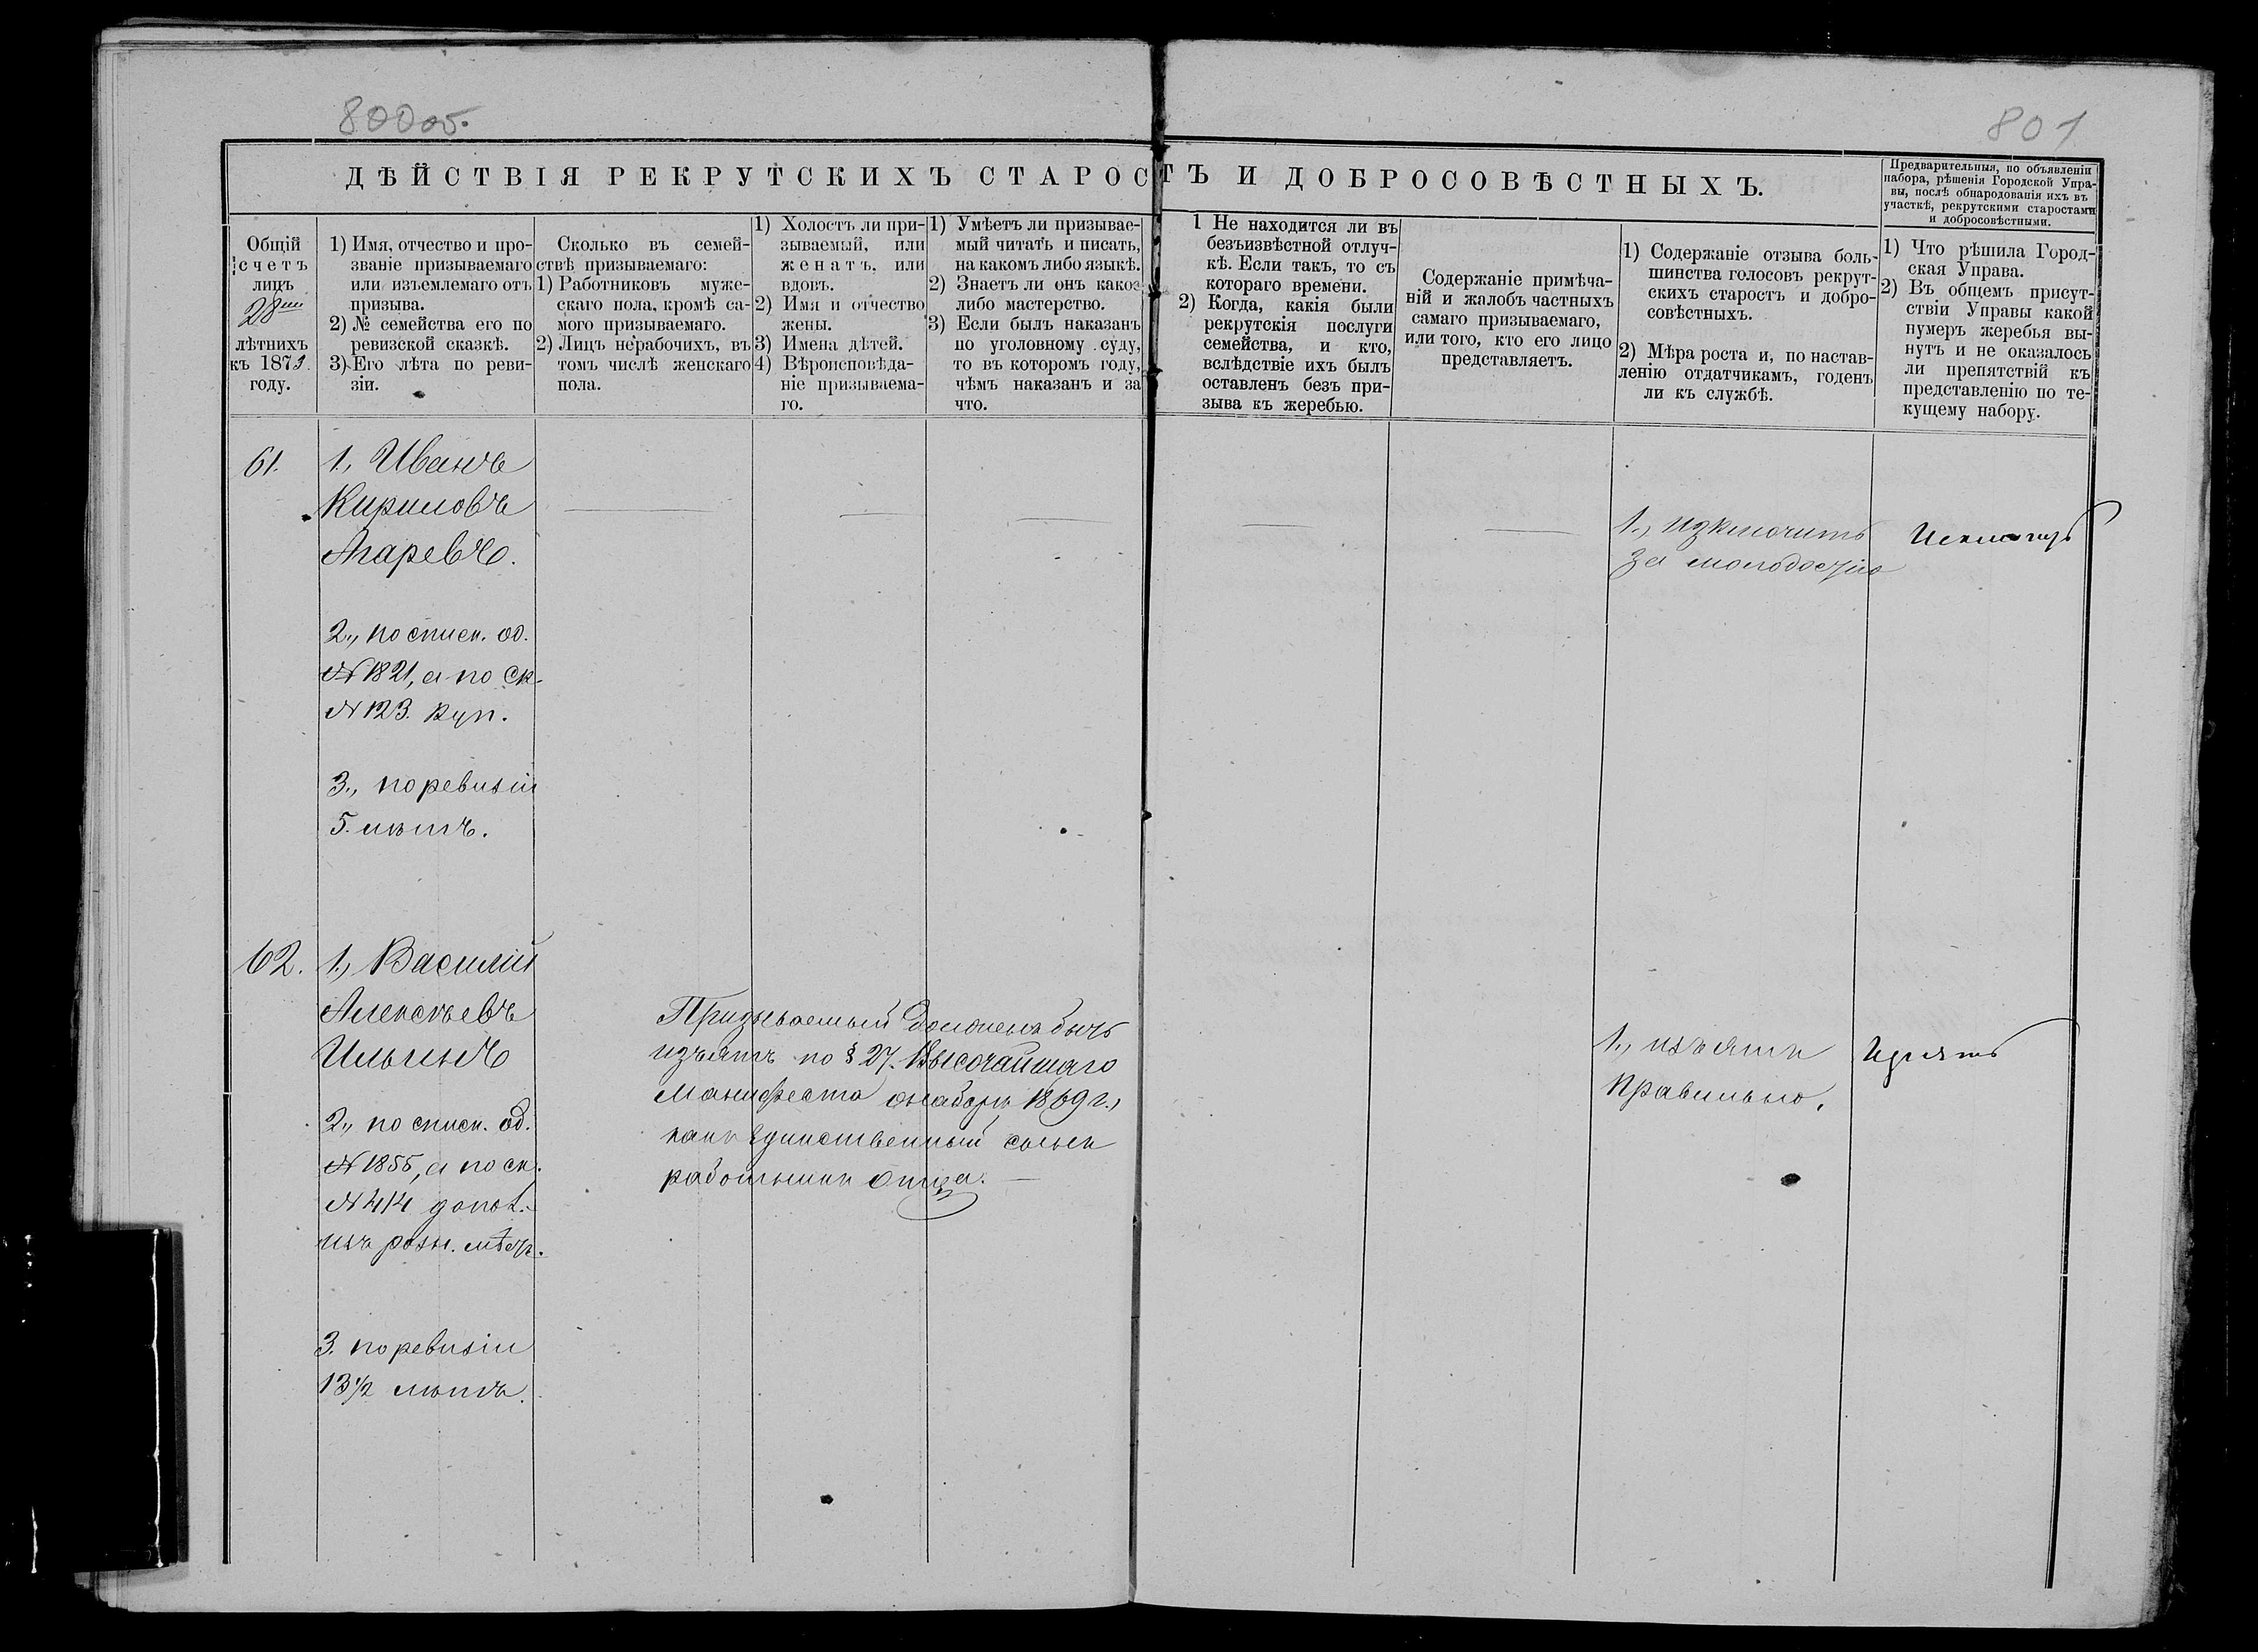 800 об.
801
ДѢЙСТВІЯ РЕКРУТСКИХЪ СТАРОСТЪ И ДОБРОСОВѢСТНЫХЪ.
Предварительныя, по объявленіи
набора, рѣшенія Городской Упра-
вы, послѣ обнародованія ихъ въ
участкѣ, рекрутскими старостами
и добросовѣстными.
Общій
счетъ
лицъ
28ми
лѣтнихъ
къ 1873
году.
1) Имя, отчество и про-
званіе призываемаго
или изъемлемаго отъ
призыва.
2) № семейства его по
ревизской сказкѣ.
3) Его лѣта по реви-
зіи.
Сколько въ семей-
ствѣ призываемаго:
1) Работниковъ муже-
скаго пола, кромѣ са-
мого призываемаго.
2) Лицъ нерабочихъ, въ
томъ числѣ женскаго
пола.
1) Холостъ ли при-
зываемый, или
женатъ, или
вдовъ.
2) Имя и отчество
жены.
3) Имена дѣтей.
4) Вѣроисповѣда-
ніе призываема-
го.
1) Умѣетъ ли призывае-
мый читать и писать,
на какомъ либо языкѣ.
2) Знаетъ ли онъ какое
либо мастерство.
3) Если былъ наказанъ
по уголовному суду,
то въ которомъ году,
чѣмъ наказанъ и за
что.
1 Не находится ли въ
безъизвѣстной отлуч-
кѣ. Если такъ, то съ
котораго времени.
2) Когда, какія были
рекрутскія послуги
семейства, и кто,
вслѣдствіе ихъ былъ
оставленъ безъ при-
зыва къ жеребью.
Содержаніе примѣча-
ній и жалобъ частныхъ
самаго призываемаго,
или того, кто его лицо
представляетъ.
1) Содержаніе отзыва боль-
шинства голосовъ рекрут-
скихъ старостъ и добро-
совѣстныхъ.
2) Мѣра роста и, по настав-
ленію отдатчикамъ, годенъ
ли къ службѣ.
1) Что рѣшила Город-
ская Управа.
2) Въ общемъ присут-
ствіи Управы какой
нумеръ жеребья вы-
нутъ и не оказалось
ли препятствій къ
представленію по те-
кущему набору.
61.
1., Иванъ
Кириловъ
Агаревъ.
2., по списк. об.
№ 1821, а по ск.
№ 123. куп.
3., по ревизіи
5. лѣтъ.
1., изключить
за молодостію
Исключить
62.
1., Василій
Алексѣевъ
Ильинъ
2., по списк. об.
№ 1855, а по ск.
№ 414 допол.
изъ розн. мѣст.
3. по ревизіи
13½ лѣтъ.
Призываемый долженъ быть
изъятъ по § 27. Высочайшаго
Манифеста о наборѣ 1869 г.,
какъ единственный сынъ
работникъ отца.
1., изъятъ
правильно.
Изъять